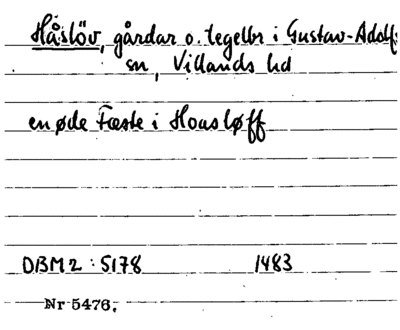 Håslöv, gårdar o. tegelbr i Gustav-Adolfs
sn, Villands hd
en øde Fæste i Hoasløff
DBM 2 : 5178 1483
Nr 5476.